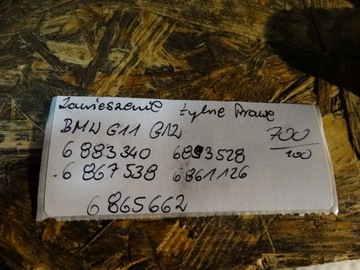 Zawieszenie tylne Prawe
BMW G11 G12 700/100
6 883340 6893528
6 867538 6861126
6 865662